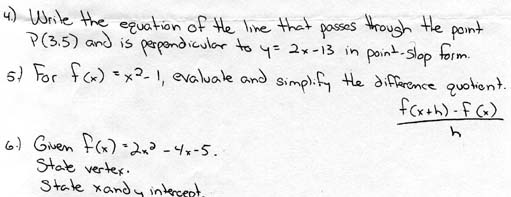 4.) Write the equation of the line that passes through the point
P(3,5) and is perpendicular to y = 2x-13 in point-slop form.
5.) For f(x) = x²-1, evaluate and simplify the difference quotient.
f(x+h) - f(x)
h
6.) Given f(x) = 2x² - 4x - 5.
State vertex.
State x and y intercept.